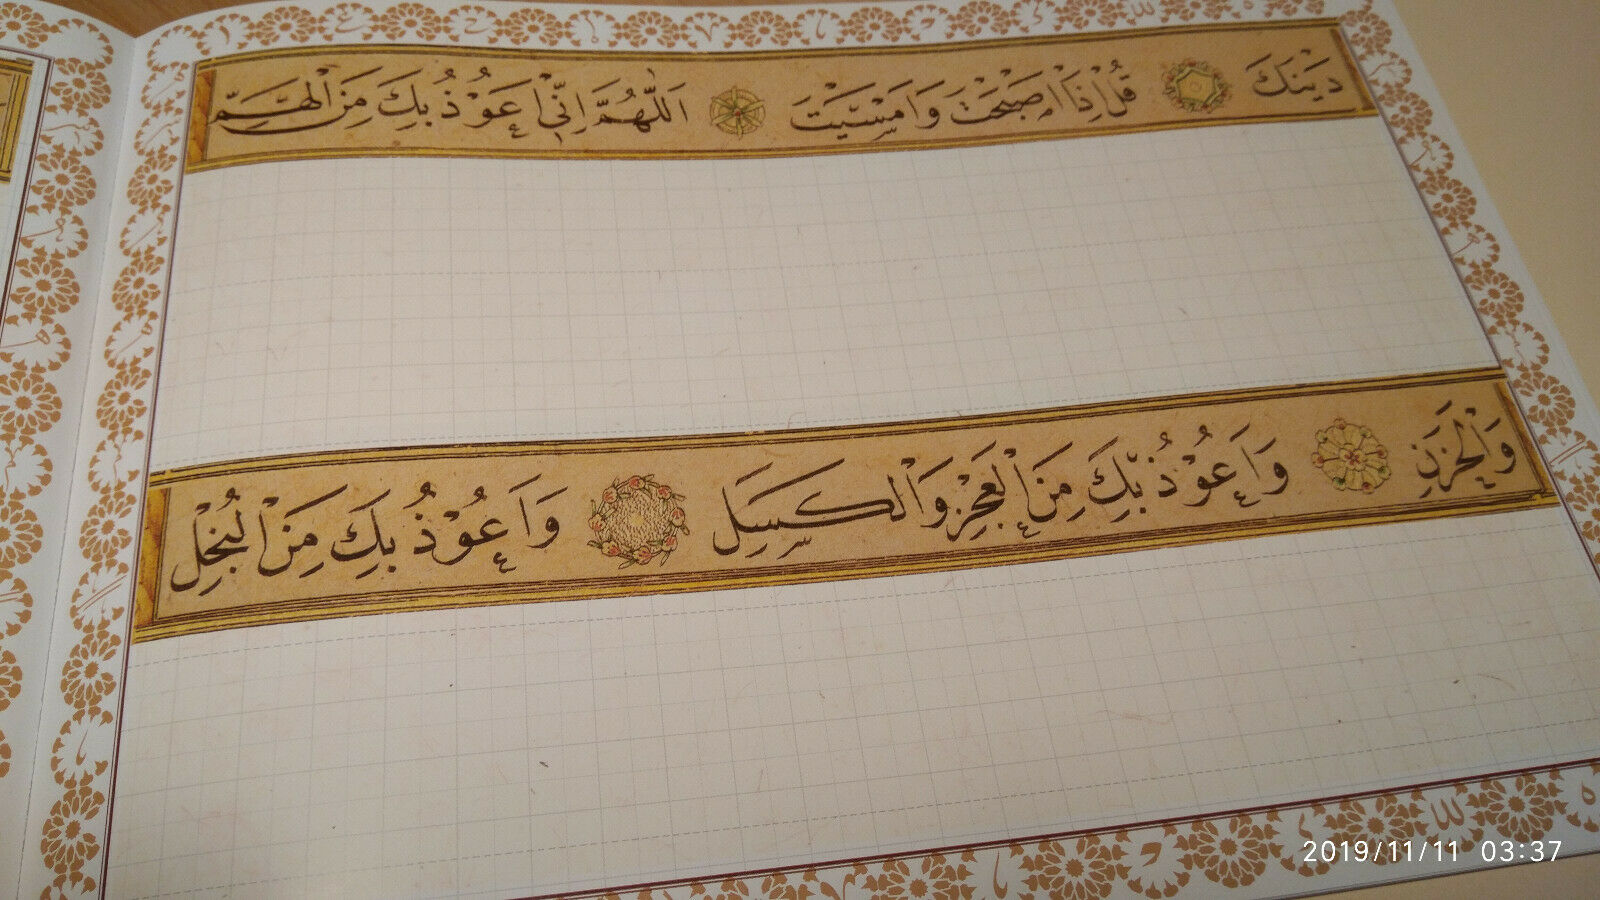 دَيْنَكَ قُلْ اِذَا اَصْبَحْتَ وَاَمْسَيْتَ اَللّٰهُمَّ اِنّٖي اَعُوْذُ بِكَ مِنَ الْهَمِّ
وَالْحَزَنِ وَاَعُوْذُ بِكَ مِنَ الْعَجْزِ وَالْكَسَلِ وَاَعُوْذُ بِكَ مِنَ الْبُخْلِ
2019/11/11 03:37